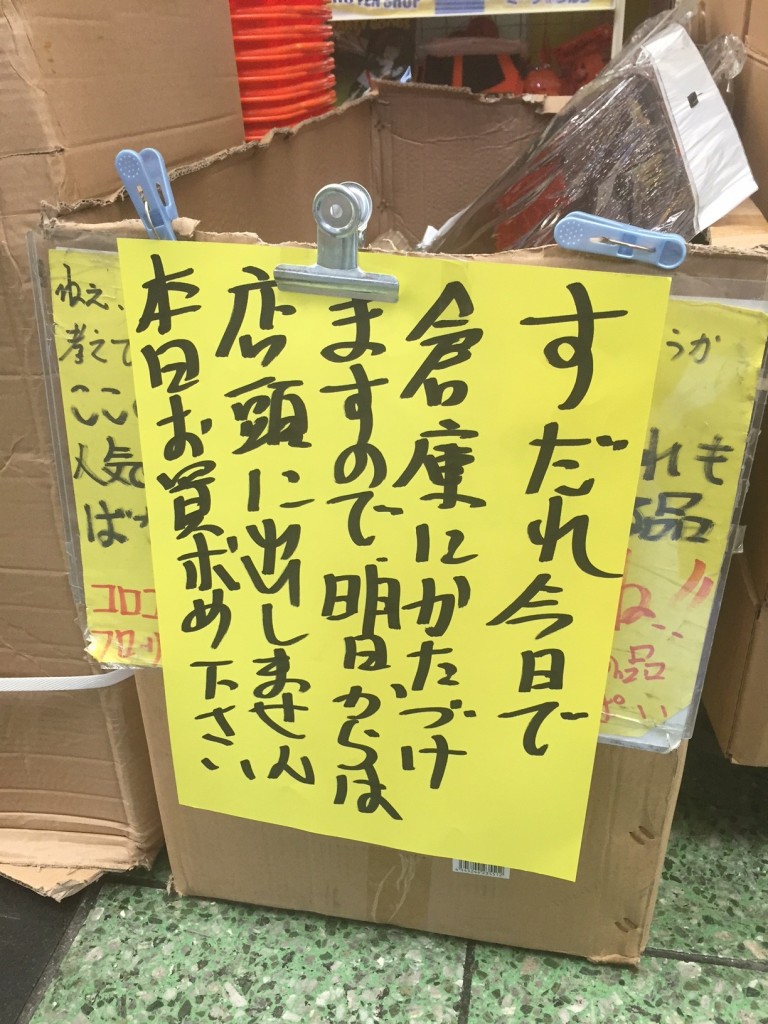 すだれ今日で
倉庫にかたづけ
ますので、明日からは
店頭に出しません
本日お買求め下さい
うか
れも
品
ね!!
の品
ぱい
ねえ、
考えて
ここ
人気
ば
コロコ
フロ